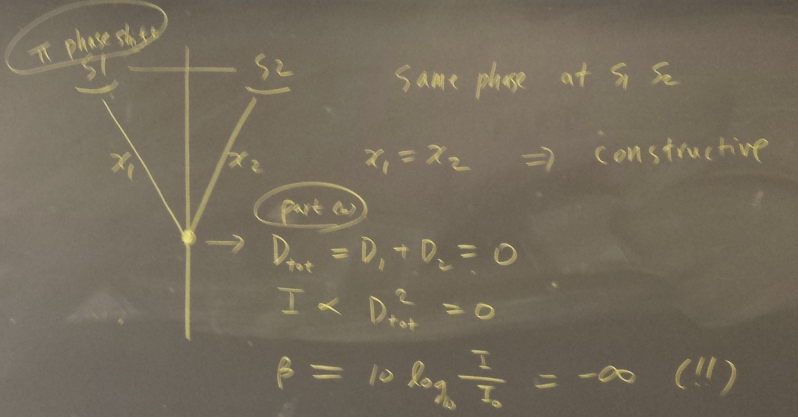 π phase shift
S1 S2
Same phase at S₁ S₂
x₁ x₂
x₁ = x₂ ⇒ constructive
→ D_tot = D₁ + D₂ = 0
I ∝ D²_tot = 0
β = 10 log₁₀ I/I₀ = -∞ (!!)